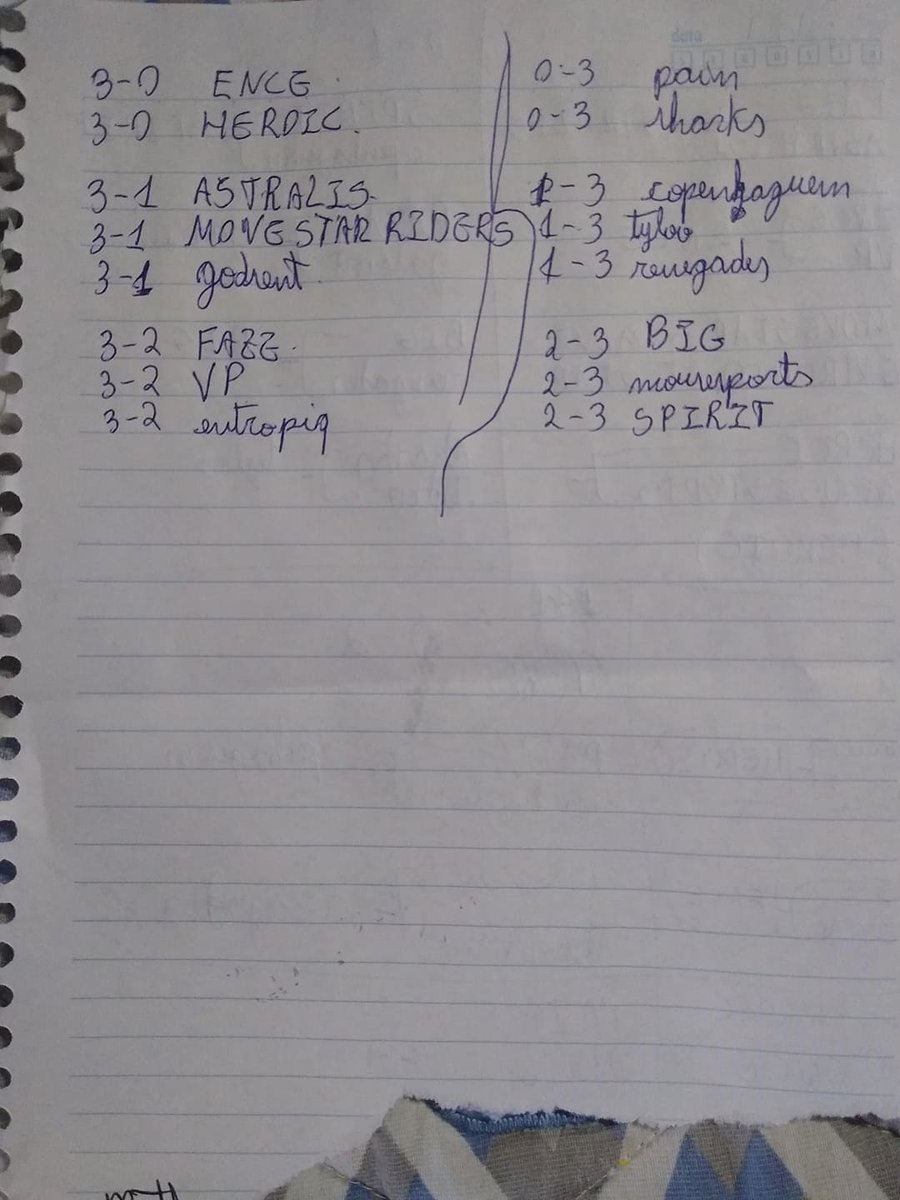 3-0 ENCE.
3-0 HEROIC.
3-1 ASTRALIS.
3-1 MOVESTAR RIDERS
3-1 godsent
3-2 FAZE.
3-2 VP
3-2 entropiq
data
0-3 pain
0-3 sharks
1-3 copenhaguem
1-3 tyloo
1-3 renegades
2-3 BIG
2-3 mousesports
2-3 SPIRIT